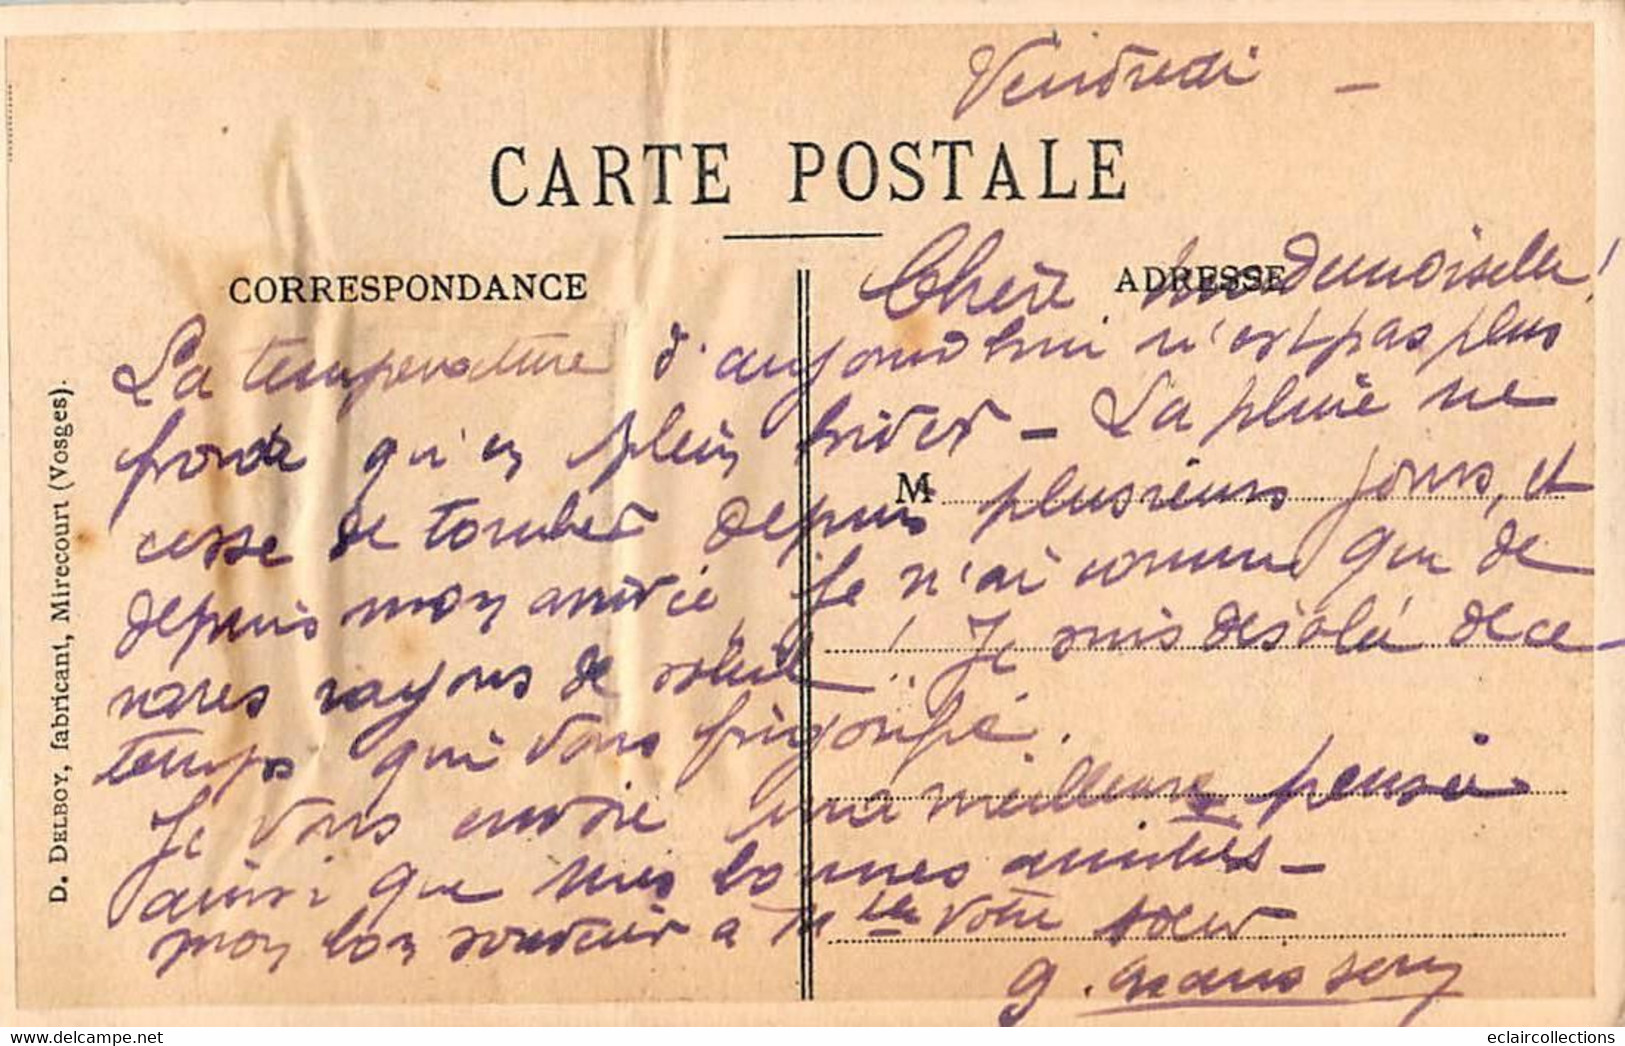 Vendredi –
CARTE POSTALE
CORRESPONDANCE
ADRESSE
Chère Mademoiselle!
La température d'aujourd'hui n'est pas plus
froide qu'en plein hiver – La pluie ne
M
cesse de tomber depuis plusieurs jours, et
depuis mon arrivée, je n'ai connu que de
rares rayons de soleil! Je suis désolé de ce
temps qui vous frigorifie.
Je vous envoie une meilleure pensée
ainsi que mes bonnes amitiés –
mon bon souvenir à Mlle votre sœur
G.
D. DELBOY, fabricant, Mirecourt (Vosges).
eclaircollections